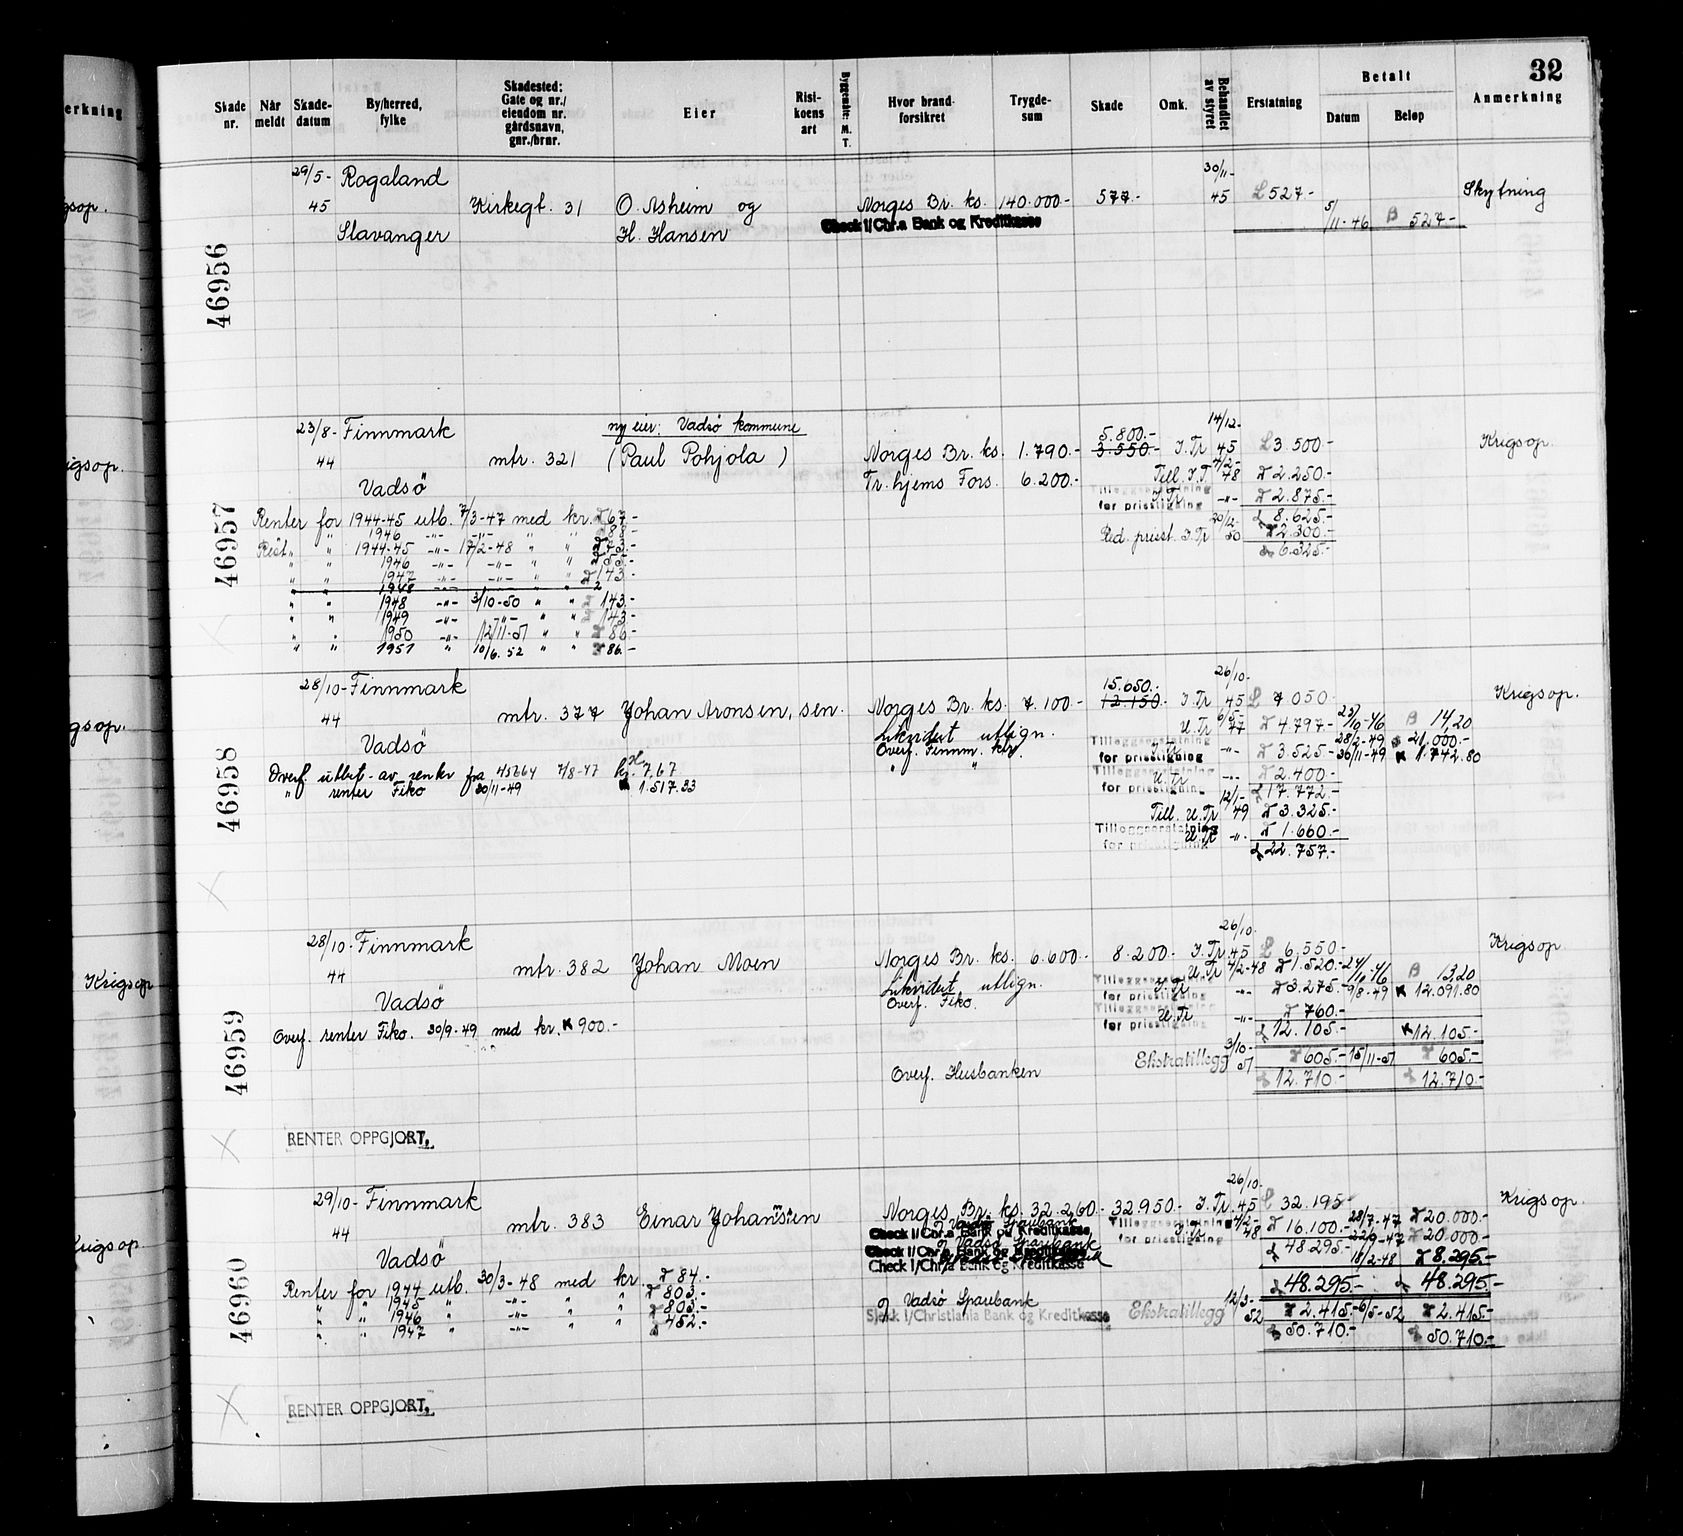 32
Skade nr.
Når meldt
Skade-datum
By/herred, fylke
Skadested: Gate og nr./ eiendom nr. gårdsnavn, gnr./brnr.
Eier
Risikoens art
Byggemåte: M. T.
Hvor brandforsikret
Trygdesum
Skade
Omk.
Behandlet av styret
Erstatning
Betalt
Datum
Beløp
Anmerkning
46956
29/5-45 Rogaland Stavanger
Kirkegt. 31
O. Asheim og H. Hansen
Norges Br. ks. 140.000.-
Check i/Chr.a Bank og Kreditkasse
577.-
30/11-45
L 527.-
5/11-46 B 527.-
Skytning
46957
23/8-44 Finnmark Vadsö
mtr. 321
ny eier: Vadsö kommune
(Paul Pohjola)
Norges Br. ks. 1.790.-
Tr.hjems Fors. 6.200.-
5.800.-
3.550.-
I. Tr 14/12-45 L 3.500.-
Till. I. T 7/2-48 2.250.-
Tilleggserstatning for prisstigning I. Tr -"- 2.875.-
8.625.-
Red. prisst. I. Tr 20/12-50 2.300.-
6.325.-
Krigsop.
Renter for 1944-45 utb. 7/3-47 med kr. 67.-
" " 1946 -"- -"- " "
Rest " " 1944-45 -"- 17/2-48 " "
" " 1946 -"- -"- " " 55.-
" " 1947 -"- -"- " " 143.-
" " 1948 -"- -"-
" " 1948 -"- 3/10-50 " " 143.-
" " 1949 -"- -"- " " 143.-
" " 1950 -"- 12/11-51 " " 86.-
" " 1951 " 10/6.52 " " 86.-
46958
28/10-44 Finnmark Vadsö
mtr. 377
Johan Aronsen, sen.
Norges Br. ks. 7.100.-
Likvidert utlign.
Overf. Finnm. ktr.
" "
15.650.-
12.150.-
I. Tr 26/10-45 L 7.050.-
U. Tr 6/5-47 4.797.- 23/10-46 B 14,20
28/2-49 21.000.-
Tilleggserstatning for prisstigning I. Tr -"- 3.525.- 30/11-49 K 1.742.80
Tilleggserstatning for prisstigning U. Tr -"- 2.400.-
17.772.-
Till. U. Tr 12/1-49 3.325.-
Tilleggserstatning for prisstigning U. Tr -"- 1.660.-
22.757.-
Krigsop.
Overf. utbet. av renter fra 45264 7/8-47 kr. 767
" renter Fiko 30/11-49 K 1.517.33
46959
28/10-44 Finnmark Vadsö
mtr. 382
Johan Moen
Norges Br. ks. 6.600.-
Likvidert utlign.
Overf. Fiko.
8.200.-
I. Tr 26/10-45 L 6.550.-
U. Tr 4/2-48 1.520.- 24/10-46 B 13,20
Tilleggserstatning for prisstigning I. Tr -"- 3.275.- 9/8-49 K 12.091.80
Tilleggserstatning for prisstigning U. Tr -"- 760.-
12.105.- K 12.105.-
Ekstratillegg 3/10-51 605.- 15/11-51 605.-
12.710.- 12.710.-
Overf. Husbanken
Krigsop
Overf. renter Fiko. 30/9-49 med kr. K 900.-
RENTER OPPGJORT.
46960
29/10-44 Finnmark Vadsö
mtr. 383
Einar Johanssen
Norges Br. ks. 32.260.-
Vadsö Sparebank
Check i/Chr.a Bank og Kreditkasse
Vadsö Sparebank
Check i/Chr.a Bank og Kreditkasse
Check i/Chr.a Bank og Kreditkasse
Vadsö Sparebank
Sjekk i/Christiania Bank og Kreditkasse
32.950.-
I. Tr. 26/10-45 L 32.195.-
Tilleggserstatning for prisstigning I. Tr 7/2-48 16.100.- 28/7-47 20.000.-
48.295.- 22/9-47 20.000.-
18/2-48 8.295.-
48.295.- 48.295.-
Ekstratillegg 12/3-52 2.415.- 6/5-52 2.415.-
50.710.- 50.710.-
Krigsop.
Renter for 1944 utb. 30/3-48 med kr. 84.-
" " 1945 " -"- " " 803.-
" " 1946 " -"- " " 803.-
" " 1947 " -"- " " 452.-
RENTER OPPGJORT.